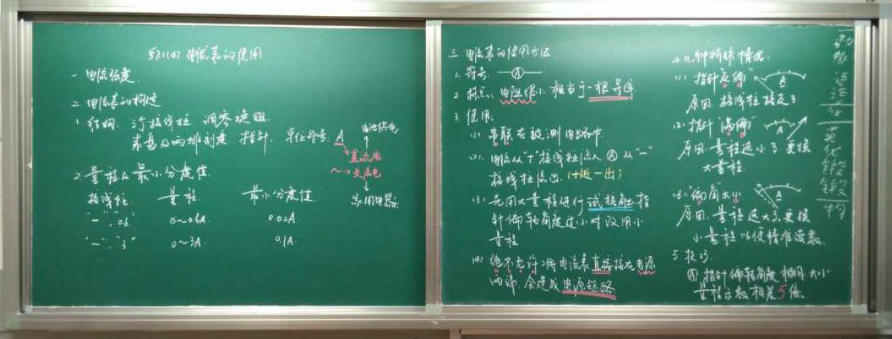 §11(4) 电流表的使用
一 电流强度
二 电流表的构造
1. 结构: 三个接线柱 调零旋钮
表盘及两排刻度 指针 单位符号 A
电池供电
直流电
～→交流电
家用电器
2. 量程及最小分度值
接线柱 量程 最小分度值
"−" "0.6" 0~0.6A 0.02A
"−" "3" 0~3A 0.1A
三 电流表的使用方法
1. 符号: A
2. 特点: 电阻很小 相当于一根导线
3. 使用:
(1) 串联在被测电路中
(2) 电流从"+"接线柱流入 A 从"−"
接线柱流出. (+进−出)
(3) 先用大量程进行试接触 指
针偏转角度过小时改用小
量程
(4) 绝不允许将电流表直接接在电源
两端 会造成电源短路
4. 几种特殊情况:
(1) 指针"反偏"
原因 接线柱接反了
(2) 指针"满偏"
原因 量程选小了 更换
大量程
(3) "偏角太小"
原因 量程选大了 更换
小量程 以便精准读数
5. 技巧
A 指针偏转角度相同 大小
量程示数相差5倍